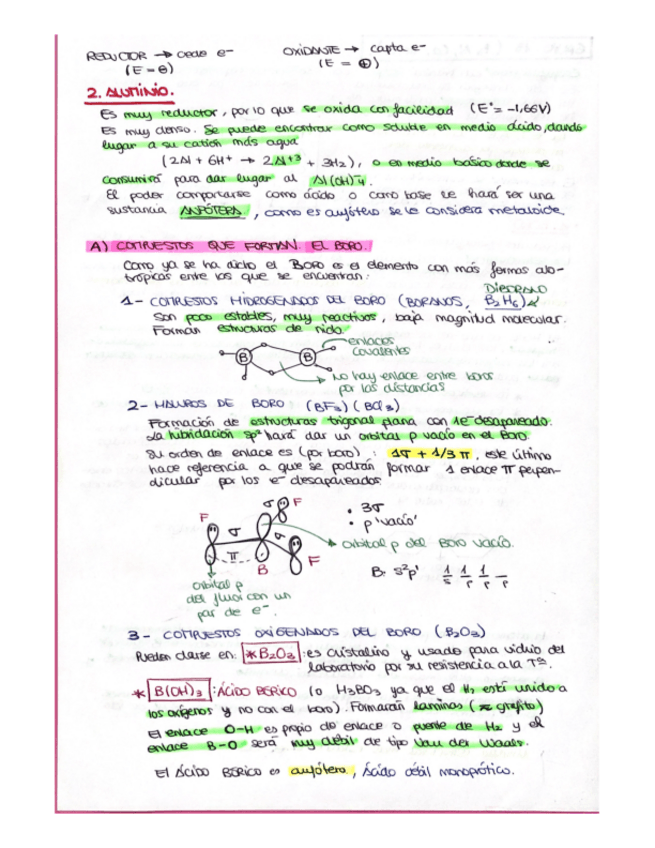 REDUCTOR → cede e- OXIDANTE → capta e-
(E = ⊖) (E = ⊕)
2. ALUMINIO.
Es muy reductor, por lo que se oxida con facilidad (E° = -1,66V)
Es muy denso. Se puede encontrar como soluble en medio ácido, dando
lugar a su catión más agua
(2Al + 6H+ → 2Al+3 + 3H2), o en medio básico donde se
consumirá para dar lugar al Al(OH)-4.
El poder comportarse como ácido o como base le hará ser una
sustancia ANFÓTERA, como es anfótero se le considera metaloide.
A) COMPUESTOS QUE FORMAN EL BORO.
Como ya se ha dicho el Boro es el elemento con más formas alo-
trópicas entre las que se encuentran:
DIBORANO
1- COMPUESTOS HIDROGENADOS DEL BORO (BORANOS, B2H6)
Son poco estables, muy reactivos, baja magnitud molecular.
Forman estructuras de nido.
enlaces
covalentes
B B
No hay enlace entre boros
por las distancias
2- HALUROS DE BORO (BF3) (BCl3)
Formación de estructuras trigonal plana con 1e- desapareado.
La hibridación sp2 hará dar un orbital p vacío en el Boro.
Su orden de enlace es (por boro): 1σ + 1/3 π, este último
hace referencia a que se podrán formar 1 enlace π perpen-
dicular por los e- desapareados.
F σ F
σ σ
π B F
• 3σ
• p 'vacío'
orbital p del Boro vacío.
B: s2p1 1 1 1
s p p p
orbital p
del fluor con un
par de e-.
3- COMPUESTOS OXIGENADOS DEL BORO (B2O3)
Pueden darse en: * B2O3 : es cristalino y usado para vidrio del
laboratorio por su resistencia a la Tª.
* B(OH)3 : ÁCIDO BÓRICO (o H3BO3 ya que el H2 está unido a
los oxígenos y no con el boro). Formarán láminas (≈ grafito)
El enlace O-H es propio de enlace o puente de H2 y el
enlace B-O será muy débil de tipo Van der Waals.
El ÁCIDO BÓRICO es anfótero, ácido débil monoprótico.